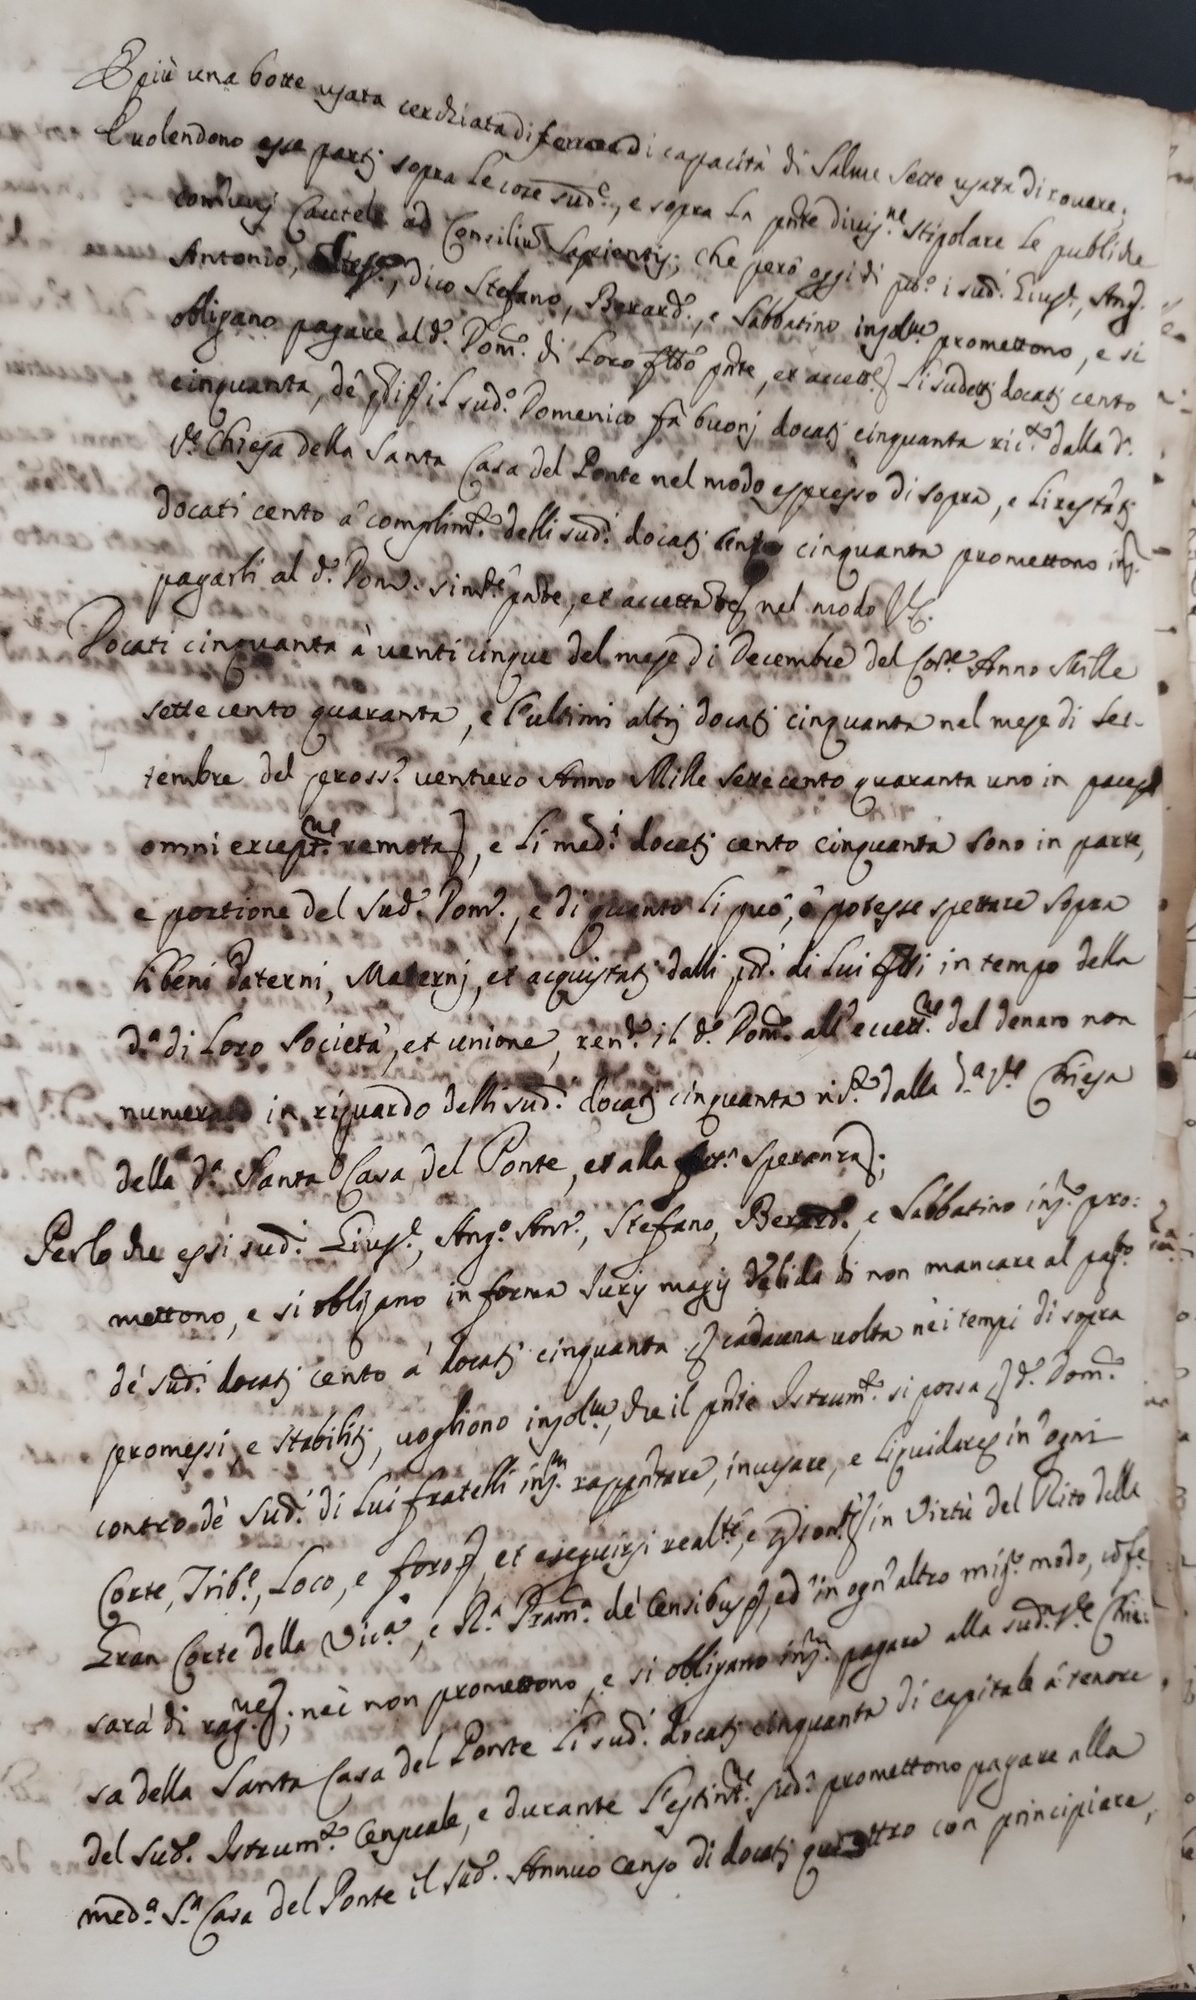 E più una botte usata cerchiata di ferro di capacità di salme sette usata di rovere;
E volendono esse partj sopra le cose sud.e, e sopra la pñte divis.ne stipolare le publiche
con Cautele ad Consilium Sapientis; che però oggi dì pto. i sud.i Giusp.e, Ang.
Antonio, dico Stefano, Berard.o, e Sabbatino insol.m promettono, e si
obligano pagare al d.o Dom.co di loro fllo pñte, et accett.e li sudettj docatj cento
cinquanta, de q.li il sud.o Domenico fà buonj docatj cinquanta ric.ti dalla d.a
V.le Chiesa della Santa Casa del Ponte nel modo espresso di sopra, e li restãtj
docati cento à complim.to delli sud.i docatj cento cinquanta promettono ins.
pagarli al d.o Dom.co pñte, et accettante nel modo
Docati cinquanta à venticinque del mese di Decembre del Cor.te Anno Mille
settecento quaranta, e l'ultimi altrj docatj cinquanta nel mese di set-
tembre del pross.o venturo Anno Mille settecento quaranta uno in pace
omni except.ne remota, e li med.i docatj cento cinquanta sono in parte,
e portione del sud.o Dom.co, e di quanto li può, ò potesse spettare sopra
li beni Paterni, Maternj, et acquistatj dalli pd.i di lui flli in tempo della
d.a di loro società, et unione, ren.do il d.o Dom.co all'eccett.ne del denaro non
numerato in riguardo delli sud.i docatj cinquanta ric.ti dalla d.a V.le Chiesa
della d.a Santa Casa del Ponte, et alla fut.a speranza;
Perloche essi sud.i Giusp.e, Ang.o Ant.o, Stefano, Berard.o, e Sabbatino ins.m pro:
mettono, e si obligano in forma Iuris magis valida di non mancare al pag.to
dè sud.i docatj cento à docatj cinquanta p cadauna volta nèi tempi di sopra
promessi, e stabilitj, vogliono insol.m, che il pñte Istrum.to si possa p d.o Dom.co
contro dè sud.i di lui fratelli ins.m rappñtare, incusare, e liquidare in ogni
Corte, Trib.e, Loco, e foro, et eseguirsi realt.e, e psonal.te in virtù del Rito della
Gran Corte della Vic.a, e R.a Pram.a dè Censibus, ed in ogn'altro mig.r modo,
sarà di rag.ne; nèc non promettono, e si obligano ins.m pagare alla sud.a V.le Chie-
sa della Santa Casa del Ponte li sud.i docatj cinquanta di capitale à tenore
del sud.o Istrum.to Censuale, e durante l'estint.ne sud.a promettono pagare alla
med.a S.a Casa del Ponte il sud.o Annuo censo di docatj quattro con principiare,